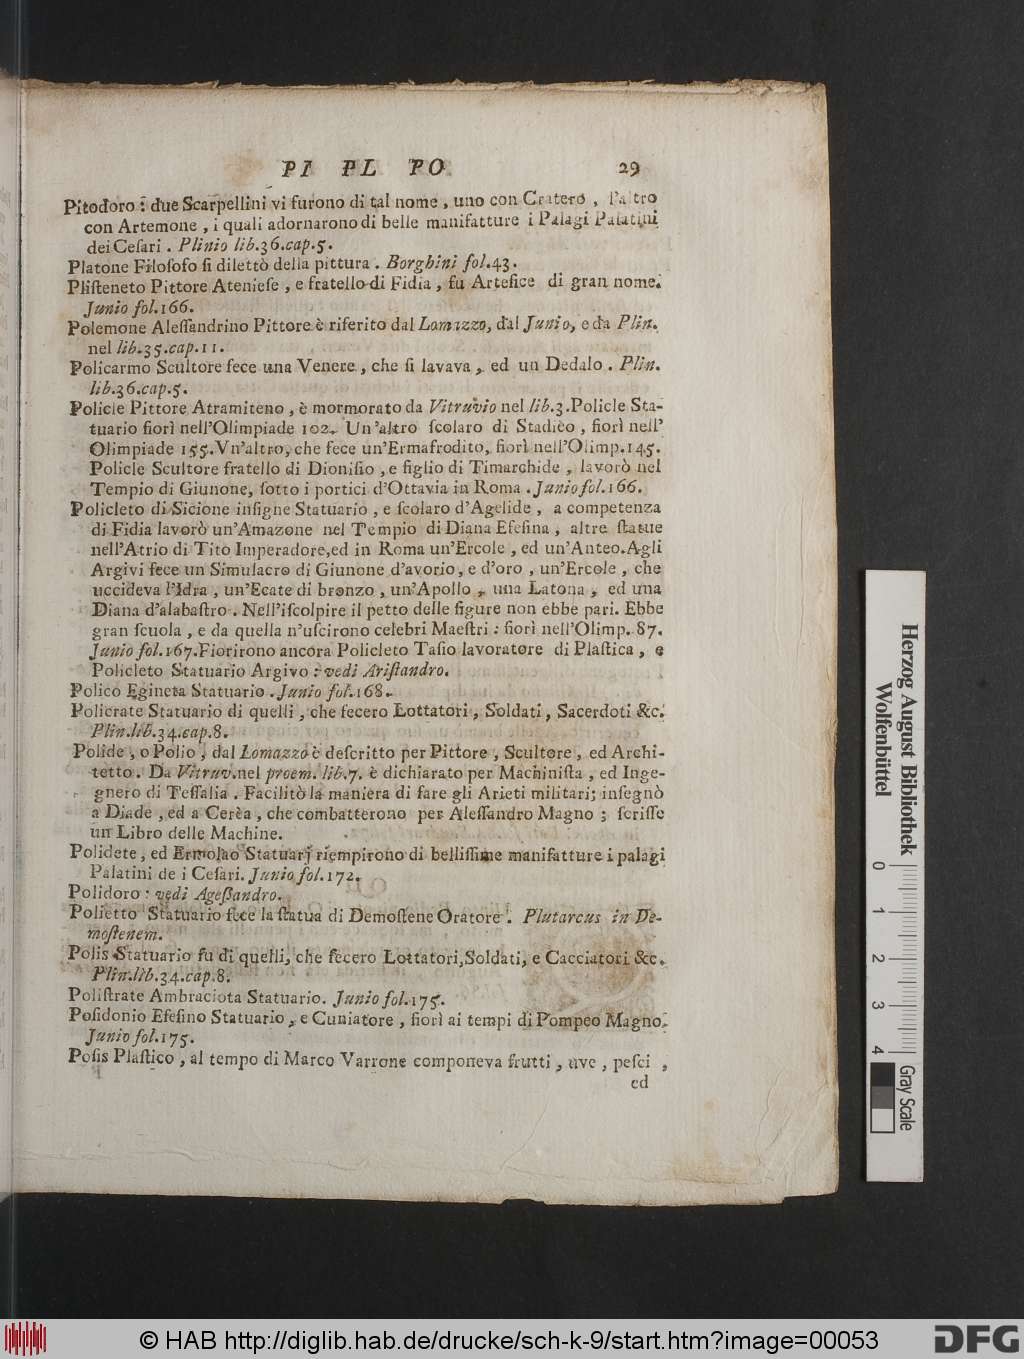 PI PL PO 29
Pitodoro : due Scarpellini vi furono di tal nome , uno con Cratero , l'altro
con Artemone , i quali adornarono di belle manifatture i Palagi Palatini
dei Ceſari . Plinio lib.36.cap.5.
Platone Filoſofo ſi dilettò della pittura . Borghini fol.43.
Pliſteneto Pittore Atenieſe , e fratello di Fidia , fu Artefice di gran nome.
Junio fol.166.
Polemone Aleſſandrino Pittore è riferito dal Lomazzo, dal Junio, e da Plin.
nel lib.35.cap.11.
Policarmo Scultore fece una Venere , che ſi lavava , ed un Dedalo . Plin.
lib.36.cap.5.
Policle Pittore Atramiteno , è mormorato da Vitruvio nel lib.3.Policle Sta-
tuario fiorì nell'Olimpiade 102. Un'altro ſcolaro di Stadièo , fiorì nell'
Olimpiade 155.Vn'altro, che fece un'Ermafrodito, fiorì nell'Olimp.145.
Policle Scultore fratello di Dioniſio , e figlio di Timarchide , lavorò nel
Tempio di Giunone, ſotto i portici d'Ottavia in Roma . Junio fol.166.
Policleto di Sicione inſigne Statuario , e ſcolaro d'Agelide , a competenza
di Fidia lavorò un'Amazone nel Tempio di Diana Efeſina , altre ſtatue
nell'Atrio di Tito Imperadore,ed in Roma un'Ercole , ed un'Anteo.Agli
Argivi fece un Simulacro di Giunone d'avorio, e d'oro , un'Ercole , che
uccideva l'Idra , un'Ecate di bronzo , un'Apollo , una Latona , ed una
Diana d'alabaſtro . Nell'iſcolpire il petto delle figure non ebbe pari. Ebbe
gran ſcuola , e da quella n'uſcirono celebri Maeſtri : fiorì nell'Olimp. 87.
Junio fol.167.Fiorirono ancora Policleto Taſio lavoratore di Plaſtica , e
Policleto Statuario Argivo : vedi Ariſtandro.
Polico Egineta Statuario . Junio fol.168.
Policrate Statuario di quelli , che fecero Lottatori , Soldati , Sacerdoti &c.
Plin.lib.34.cap.8.
Polide , o Polio , dal Lomazzo è deſcritto per Pittore , Scultore , ed Archi-
tetto . Da Vitruv.nel proem. lib.7. è dichiarato per Machiniſta , ed Inge-
gnero di Teſſalia . Facilitò la maniera di fare gli Arieti militari; inſegnò
a Diade , ed a Cerèa , che combatterono per Aleſſandro Magno ; ſcriſſe
un Libro delle Machine.
Polidete , ed Ermolao Statuarj riempirono di belliſſime manifatture i palagi
Palatini de i Ceſari. Junio fol.172.
Polidoro : vedi Ageßandro.
Polietto Statuario fece la ſtatua di Demoſtene Oratore . Plutarcus in De-
moſtenem.
Polis Statuario fu di quelli, che fecero Lottatori,Soldati, e Cacciatori &c.
Plin.lib.34.cap.8.
Poliſtrate Ambraciota Statuario. Junio fol.175.
Poſidonio Efeſino Statuario , e Cuniatore , fiorì ai tempi di Pompeo Magno.
Junio fol.175.
Poſis Plaſtico , al tempo di Marco Varrone componeva frutti , uve , peſci ,
ed
Herzog August Bibliothek
Wolfenbüttel
0 1 2 3 4
Gray Scale
© HAB http://diglib.hab.de/drucke/sch-k-9/start.htm?image=00053
DFG